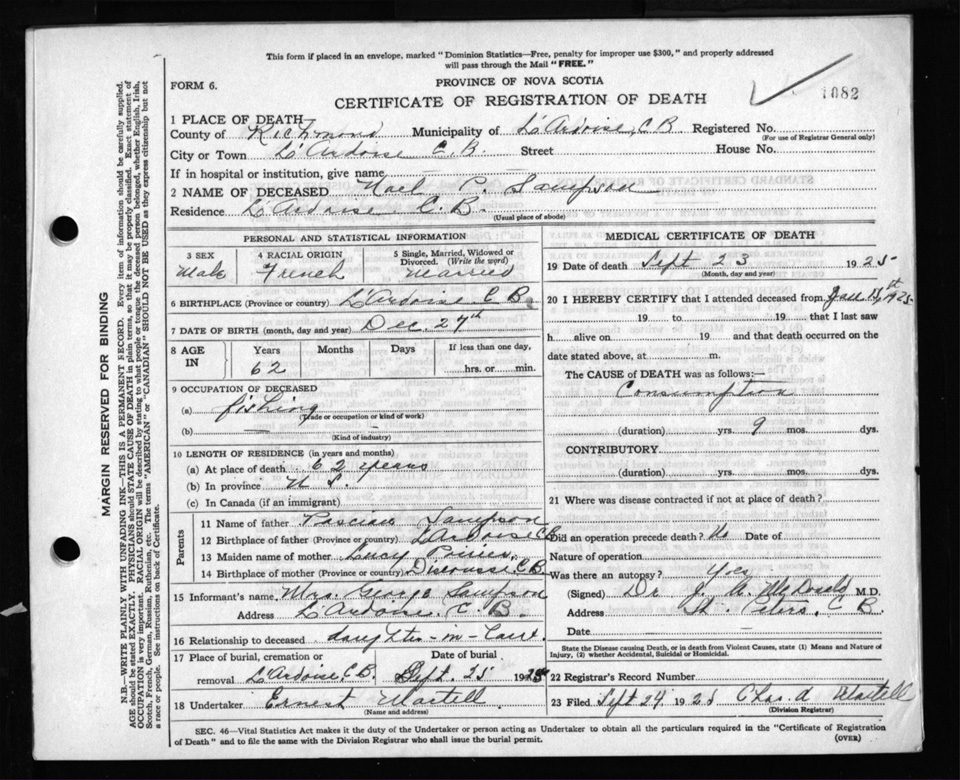 This form if placed in an envelope, marked "Dominion Statistics—Free, penalty for improper use $300," and properly addressed
will pass through the Mail "FREE."
FORM 6.
PROVINCE OF NOVA SCOTIA
CERTIFICATE OF REGISTRATION OF DEATH
1082
1 PLACE OF DEATH
County of Richmond Municipality of L'Ardoise C B Registered No.
(For use of Registrar General only)
City or Town L'Ardoise C B. Street House No.
If in hospital or institution, give name
2 NAME OF DECEASED Noel P. Sampson
Residence L'Ardoise C. B.
(Usual place of abode)
PERSONAL AND STATISTICAL INFORMATION
3 SEX
Male
4 RACIAL ORIGIN
French
5 Single, Married, Widowed or Divorced. (Write the word)
Married
6 BIRTHPLACE (Province or country) L'Ardoise C B.
7 DATE OF BIRTH (month, day and year) Dec. 27th
8 AGE IN
Years Months Days If less than one day,
62 hrs. or min.
9 OCCUPATION OF DECEASED
(a) fishing
(Trade or occupation or kind of work)
(b)
(Kind of industry)
10 LENGTH OF RESIDENCE (in years and months)
(a) At place of death 62 years
(b) In province N S.
(c) In Canada (if an immigrant)
Parents
11 Name of father Sampson
12 Birthplace of father (Province or country) L'Ardoise C B
13 Maiden name of mother Lucy Poirier
14 Birthplace of mother (Province or country) C.B.
15 Informant's name Mrs. George Sampson
Address L'Ardoise C. B.
16 Relationship to deceased daughter-in-law.
17 Place of burial, cremation or removal Date of burial
L'Ardoise C.B. Sept. 25 1925
18 Undertaker Ernest Martell
(Name and address)
MEDICAL CERTIFICATE OF DEATH
19 Date of death Sept 23 1925
(Month, day and year)
20 I HEREBY CERTIFY that I attended deceased from 1925
19 to 19 that I last saw
h alive on 19 and that death occurred on the
date stated above, at m.
The CAUSE OF DEATH was as follows:—
Consumption
(duration) yrs. 9 mos. dys.
CONTRIBUTORY
(duration) yrs. mos. dys.
21 Where was disease contracted if not at place of death?
Did an operation precede death? No Date of
Nature of operation
Was there an autopsy? Yes
(Signed) Dr J. A. M.D.
Address St. Peters, C B.
Date
State the Disease causing Death, or in death from Violent Causes, state (1) Means and Nature of
Injury, (2) whether Accidental, Suicidal or Homicidal.
22 Registrar's Record Number
23 Filed Sept 24 1925 Chas. A Martell
(Division Registrar)
SEC. 46—Vital Statistics Act makes it the duty of the Undertaker or person acting as Undertaker to obtain all the particulars required in the "Certificate of Registration
of Death" and to file the same with the Division Registrar who shall issue the burial permit.
(OVER)
MARGIN RESERVED FOR BINDING
N.B.—WRITE PLAINLY WITH UNFADING INK—THIS IS A PERMANENT RECORD. Every item of information should be carefully supplied.
AGE should be stated EXACTLY. PHYSICIANS should STATE CAUSE OF DEATH in plain terms, so that it may be properly classified. Exact statement of
OCCUPATION is very important. RACIAL ORIGIN will be described by stating to what people or tongue the deceased person belonged, whether English, Irish,
Scotch, French, German, Russian, Ruthenian, etc. The terms "AMERICAN" or "CANADIAN" SHOULD NOT BE USED as they express citizenship but not
a race or people. See instructions on back of Certificate.